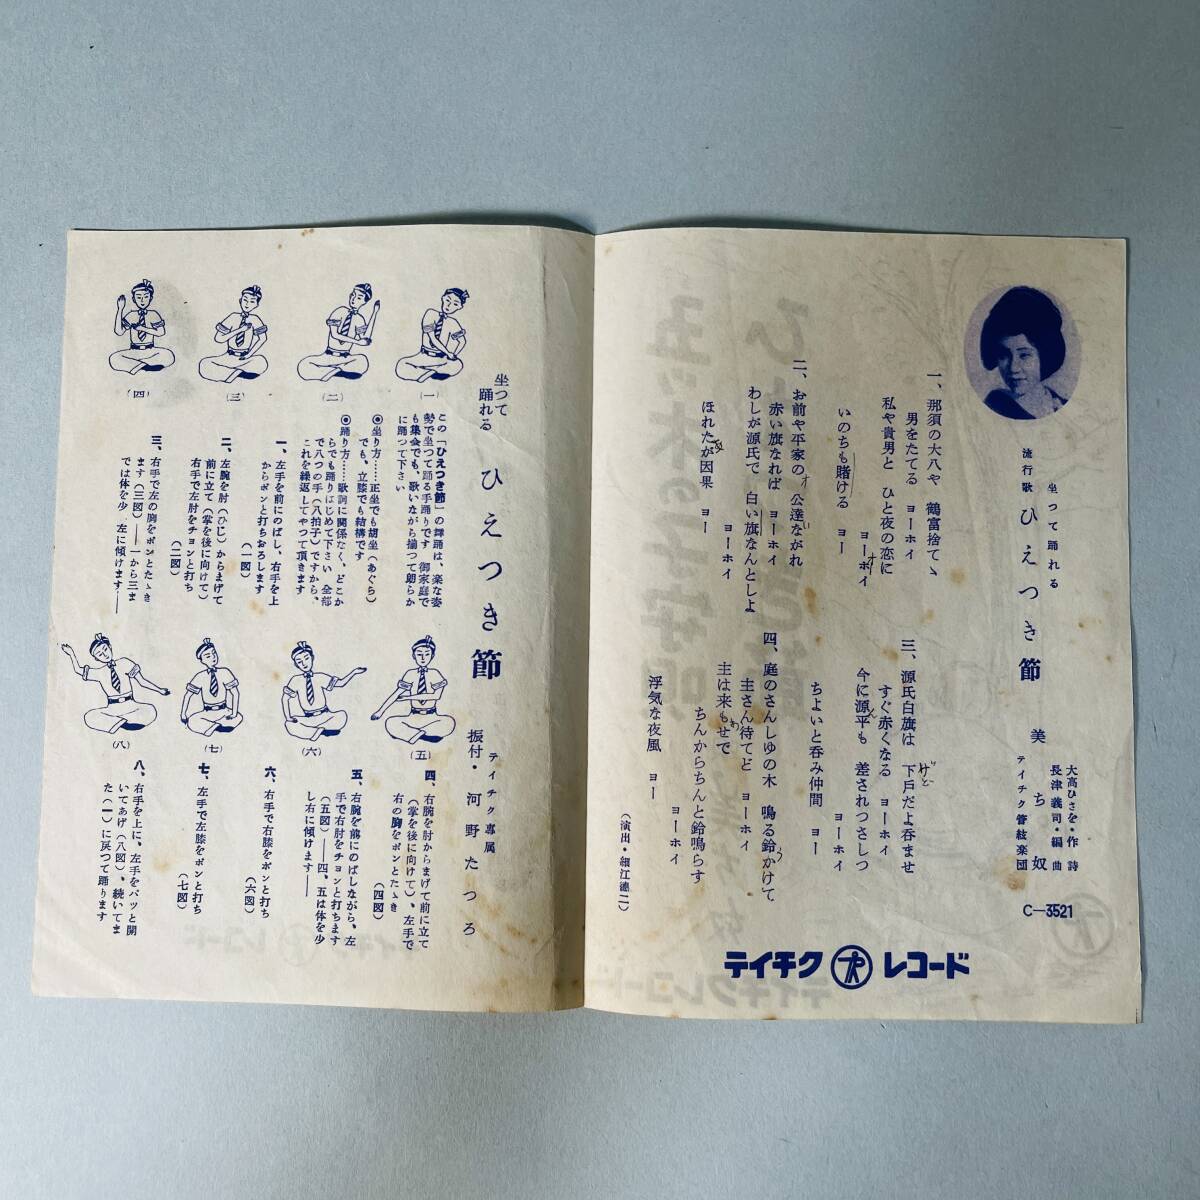 坐つて踊れる
流行歌 ひえつき節
大高ひさを・作詩
長津義司・編曲
美ち奴
テイチク管絃楽団
C—3521
一、那須の大八や 鶴富捨てゝ
男をたてる ヨーホイ
私や貴男と ひと夜の恋に
いのちも賭ける ヨーホイ
ヨー
二、お前や平家の 公達ながれ
赤い旗なれば ヨーホイ
わしが源氏で 白い旗なんとしよ
ヨーホイ
ほれたが因果 ヨー
三、源氏白旗は 下戸だよ呑ませ
けど
すぐ赤くなる ヨーホイ
今に源平も 差されつさしつ
ヨーホイ
ちよいと呑み仲間 ヨー
四、庭のさんしゆの木 鳴る鈴かけて
主さん待てど ヨーホイ
主は来もせで
ちんからちんと鈴鳴らす
ヨーホイ
浮気な夜風 ヨー
(演出・細江達二)
テイチク レコード
坐つて踊れる ひえつき節
テイチク専属
振付・河野たつろ
この「ひえつき節」の舞踊は、楽な姿
勢で坐つて踊る手踊りです 御家庭で
も集会でも、歌いながら揃つて朗らか
に踊つて下さい
◎坐り方……正坐でも胡坐(あぐら)
でも、立膝でも結構です
◎踊り方……歌詞に関係なく、どこか
らでも踊りはじめて下さい 全部
で八つの手(八拍子)ですから、
これを繰返してやつて頂きます
一、左手を前にのばし、右手を上
からポンと打ちおろします
(一図)
二、左腕を肘(ひじ)からまげて
前に立て(掌を後に向けて)
右手で左肘をチョンと打ち
(二図)
三、右手で左の胸をポンとたゝき
ます(三図)——一から三ま
では体を少し左に傾けます——
四、右腕を肘からまげて前に立て
(掌を後に向けて)、左手で
右の胸をポンとたゝき
(四図)
五、右腕を前にのばしながら、左
手で右肘をチョンと打ちます
(五図)——四、五は体を少
し右に傾けます——
六、右手で右膝をポンと打ち
(六図)
七、左手で左膝をポンと打ち
(七図)
八、右手を上に、左手をパッと開
いてあげ(八図)、続いてま
た(一)に戻つて踊ります
(一)
(二)
(三)
(四)
(五)
(六)
(七)
(八)